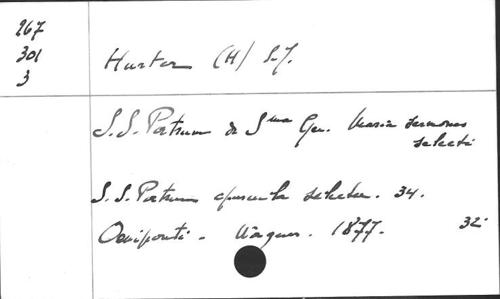 267
301
3
Hurter (H) S.J.
S.S. Patrum de Sma Gen. Maria sermones
selecti
S.S. Patrum opuscula selecta. 34.
Oeniponti. Wagner. 1877. 32·